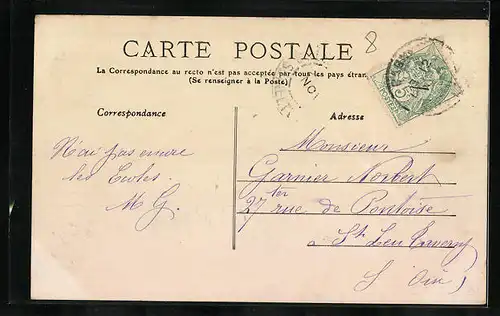 8
CARTE POSTALE
La Correspondance au recto n'est pas acceptée par tous les pays étran.
(Se renseigner à la Poste)
Correspondance
Adresse
N'ai pas encore
les
M G.
Monsieur
Garnier Norbert
27 ter rue de Pontoise
à St Leu Taverny
S Oise